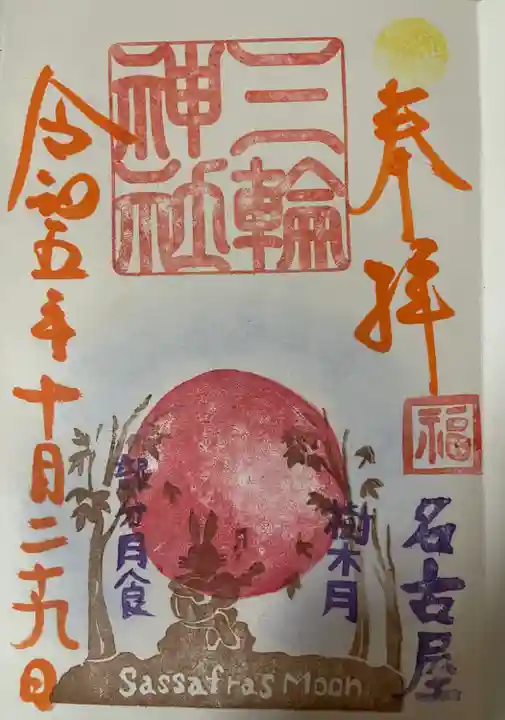 奉拝
福
名古屋
三輪
神社
樹木月
部分月食
Sassafras Moon
令和五年十月二十九日